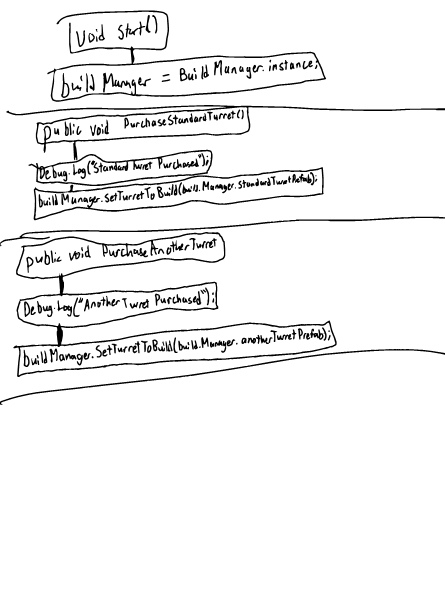 void Start()
build Manager = Build Manager.instance;
public void PurchaseStandardTurret()
Debug.Log("Standard Turret Purchased");
build Manager.SetTurretToBuild(build.Manager.StandardTurretPrefab);
public void PurchaseAnotherTurret
Debug.Log("Another Turret Purchased");
build Manager.SetTurretToBuild(build.Manager.anotherTurretPrefab);